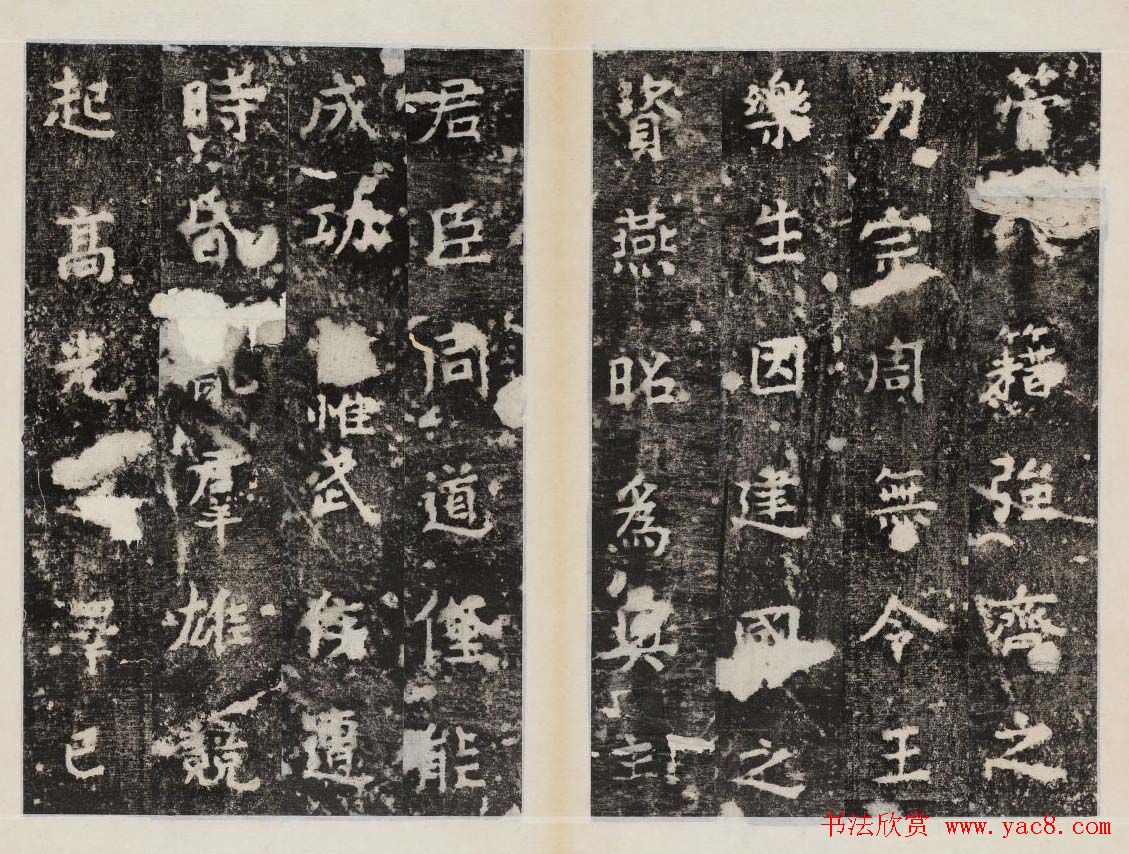 管 籍強齊之
力宗周無令王
樂生因建國之
資燕昭爲奧主
君臣同道僅能
成功 惟武侯遭
時昏亂羣雄競
起高光 澤已
书法欣赏 www.yac8.com